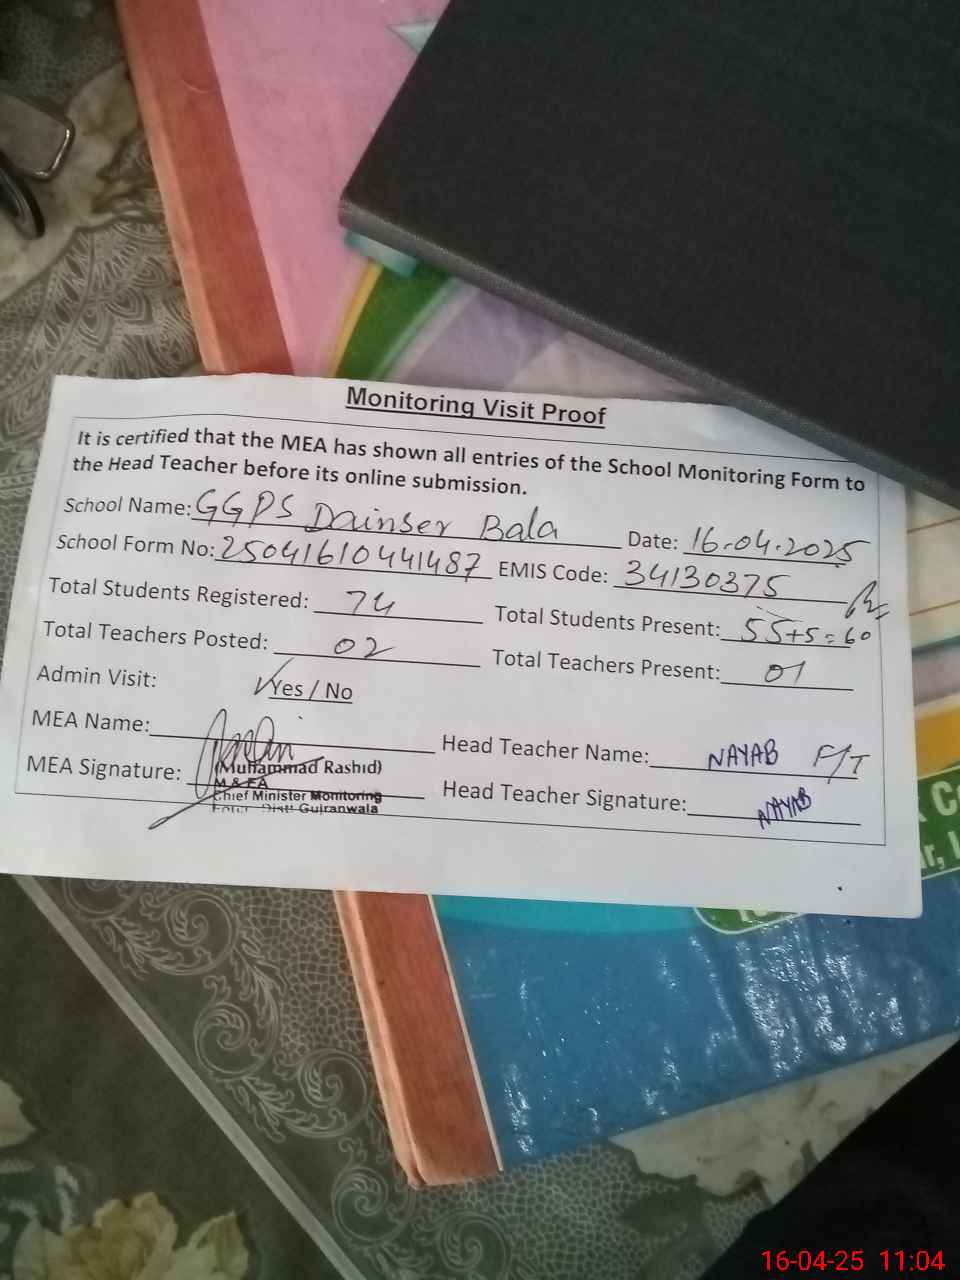 Monitoring Visit Proof
It is certified that the MEA has shown all entries of the School Monitoring Form to
the Head Teacher before its online submission.
School Name: GGPS Dainser Bala Date: 16.04.2025
School Form No: 25041610441487 EMIS Code: 34130375
Total Students Registered: 74 Total Students Present: 55+5=60
Total Teachers Posted: 02 Total Teachers Present: 01
Admin Visit: ✓Yes / No
MEA Name: Head Teacher Name: NAYAB F/T
MEA Signature: Head Teacher Signature: NAYAB
(Muhammad Rashid)
M & EA
Chief Minister Monitoring
Force Distt Gujranwala
16-04-25 11:04